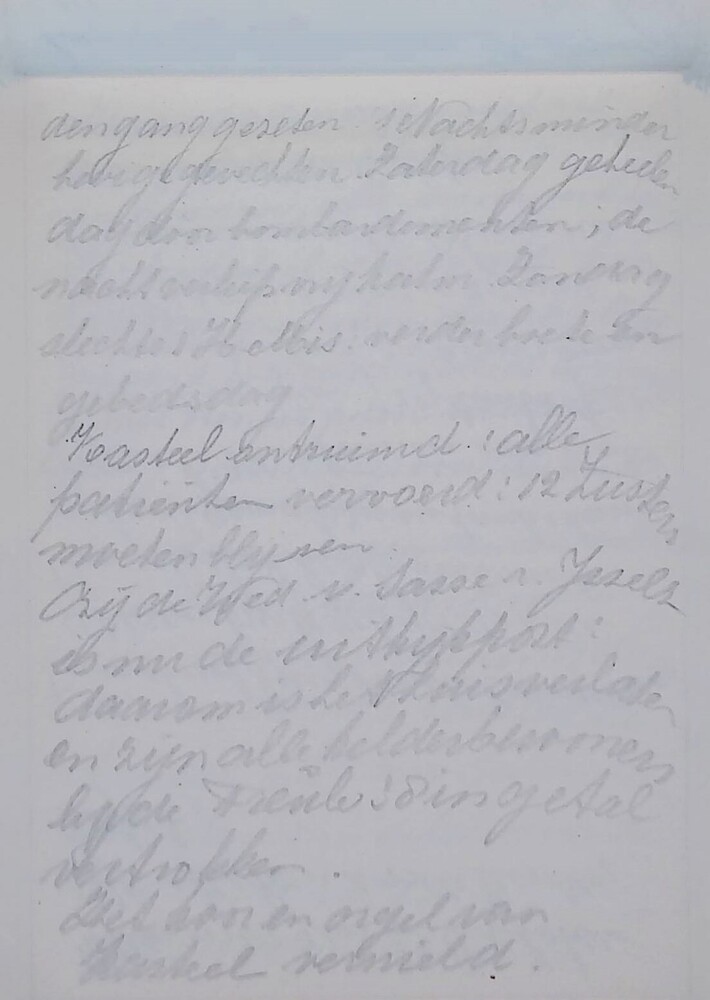 den gang gezeten. 's Nachts minder
hevige gevechten. Zaterdag geheelen
dag door bombardementen; de
nacht verliep vrij kalm. Zondag
slechts 1 H. Mis: verder boete en
gebedsdag
Kasteel ontruimd: alle
patienten vervoerd: 12 Zusters
moeten blijven.
Bij de Wed. v. Sasse v. Ysselt
is nu de uitkijkpost:
daarom is het huis verlaten
en zijn alle kelderbewoners
bij de Freule: 8 in getal
vertrokken.
Het koor en orgel van
Kasteel vernield.